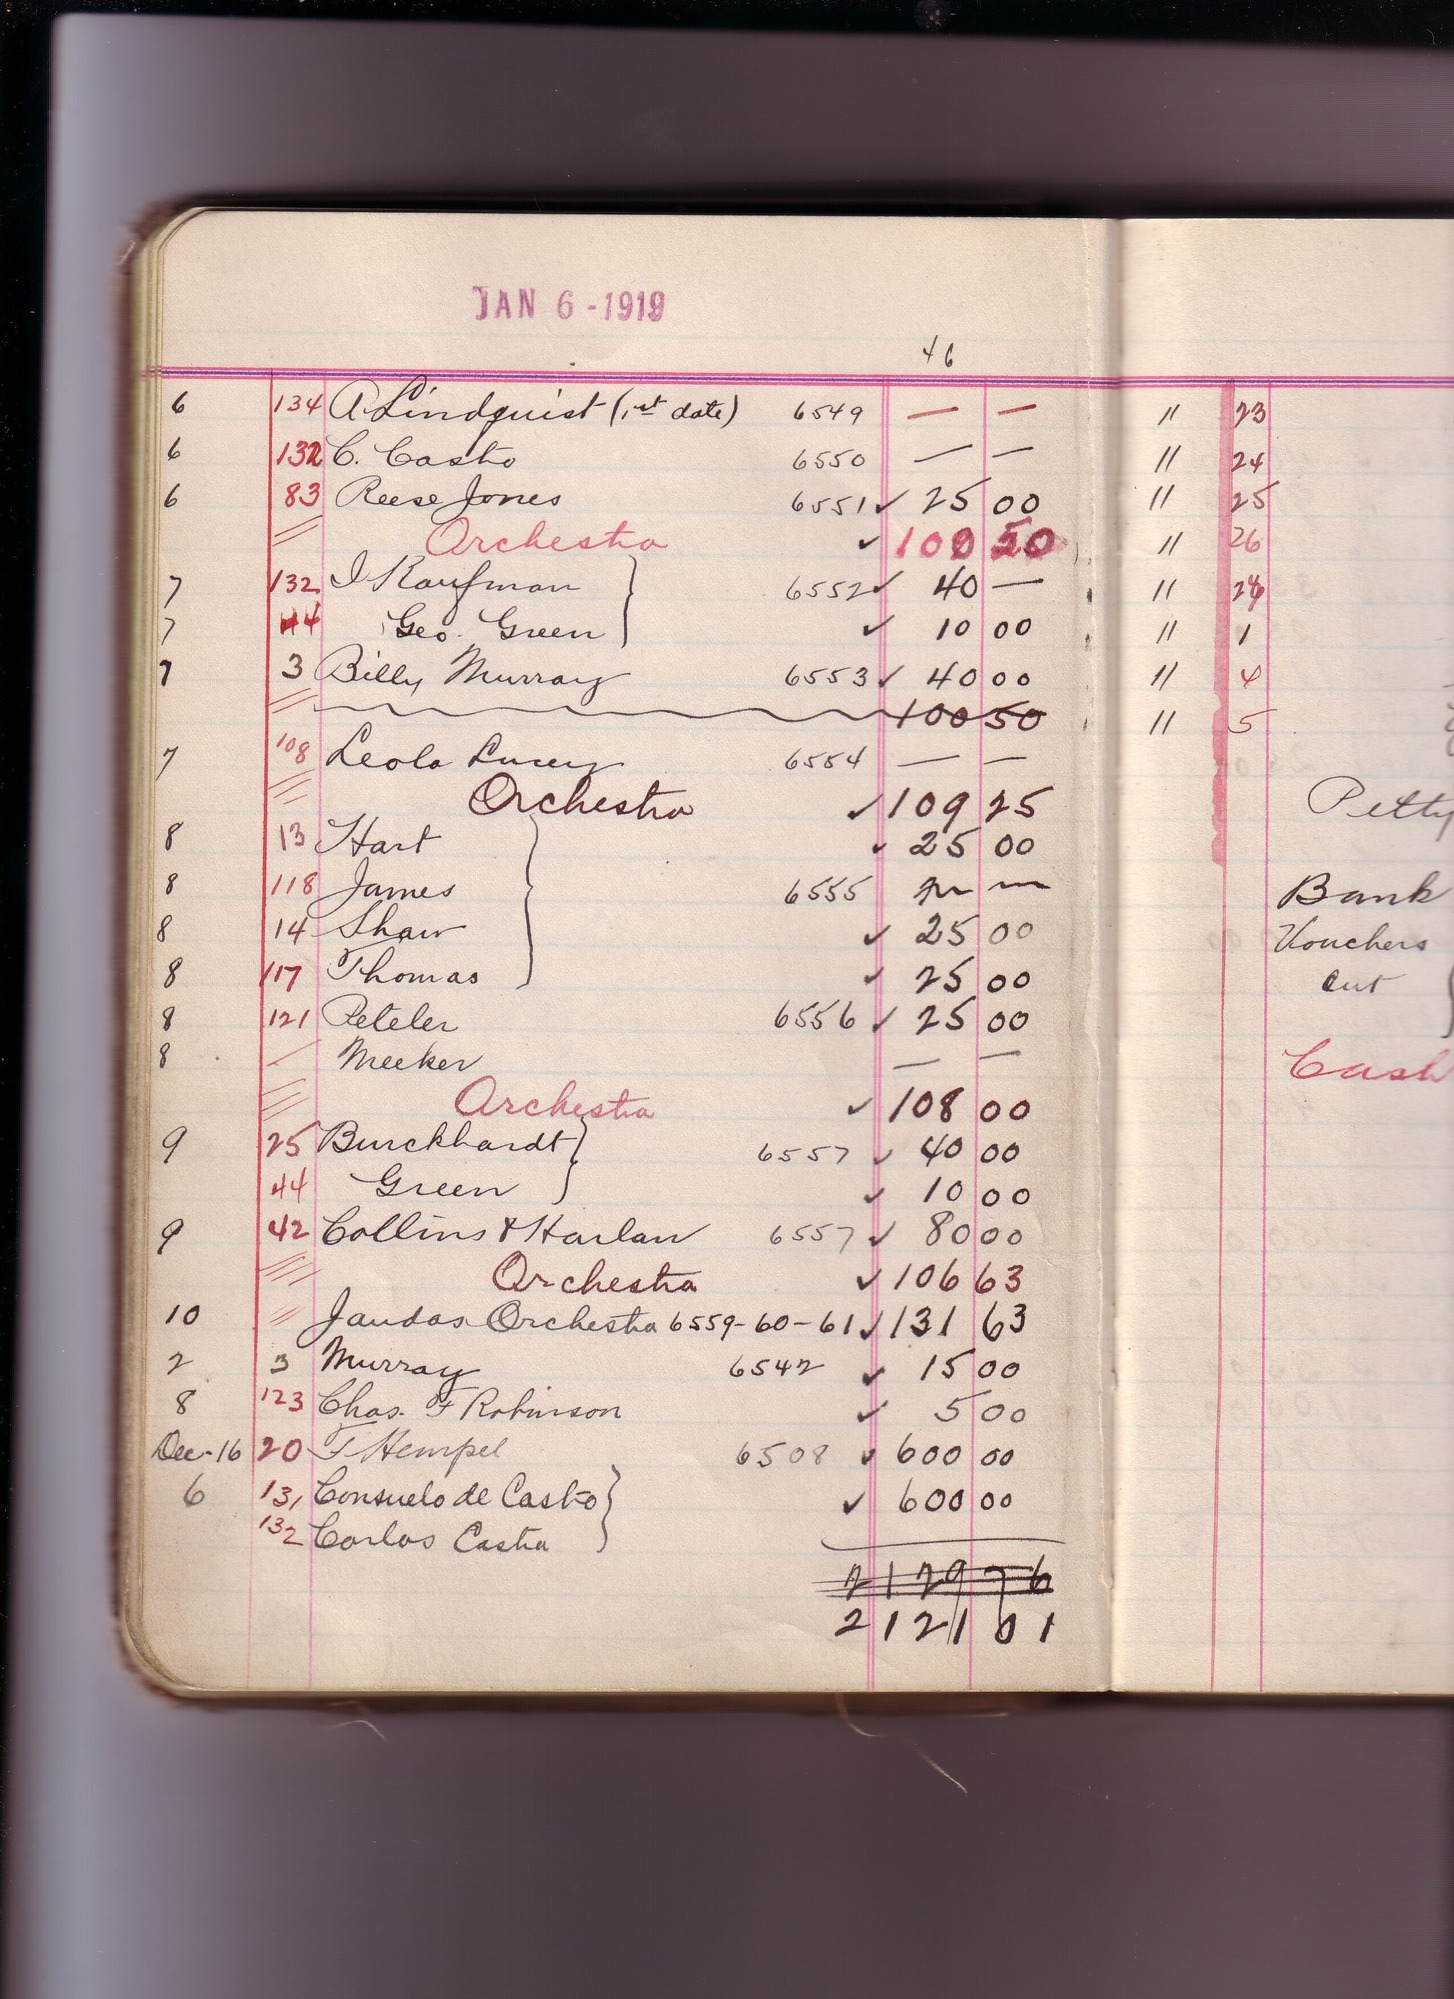 JAN 6 - 1919
46
6 134 A Lindquist (1st date) 6549 — —
6 132 C. Casto 6550 — —
6 83 Reese Jones 6551 ✓ 25 00
Orchestra ✓ 100 50
7 132 I Kaufman 6552 ✓ 40 —
7 44 Geo. Green ✓ 10 00
7 3 Billy Murray 6553 ✓ 40 00
100 50
7 108 Leola Lucey 6554 — —
Orchestra ✓ 109 25
8 13 Hart ✓ 25 00
8 118 James 6555 — —
8 14 Shaw ✓ 25 00
8 117 Thomas ✓ 25 00
8 121 Peteler 6556 ✓ 25 00
8 — Meeker — —
Orchestra ✓ 108 00
9 25 Burckhardt 6557 ✓ 40 00
44 Green ✓ 10 00
9 42 Collins & Harlan 6557 ✓ 80 00
Orchestra ✓ 106 63
10 " Jaudas Orchestra 6559-60-61 ✓ 131 63
2 3 Murray 6542 ✓ 15 00
8 123 Chas. F Robinson ✓ 5 00
Dec-16 20 F Hempel 6508 ✓ 600 00
6 131 Consuelo de Casto ✓ 600 00
132 Carlos Casta
2129 76
2121 01
" 23
" 24
" 25
" 26
"
" 1
" 4
" 5
Petty
Bank
Vouchers
out
Cash